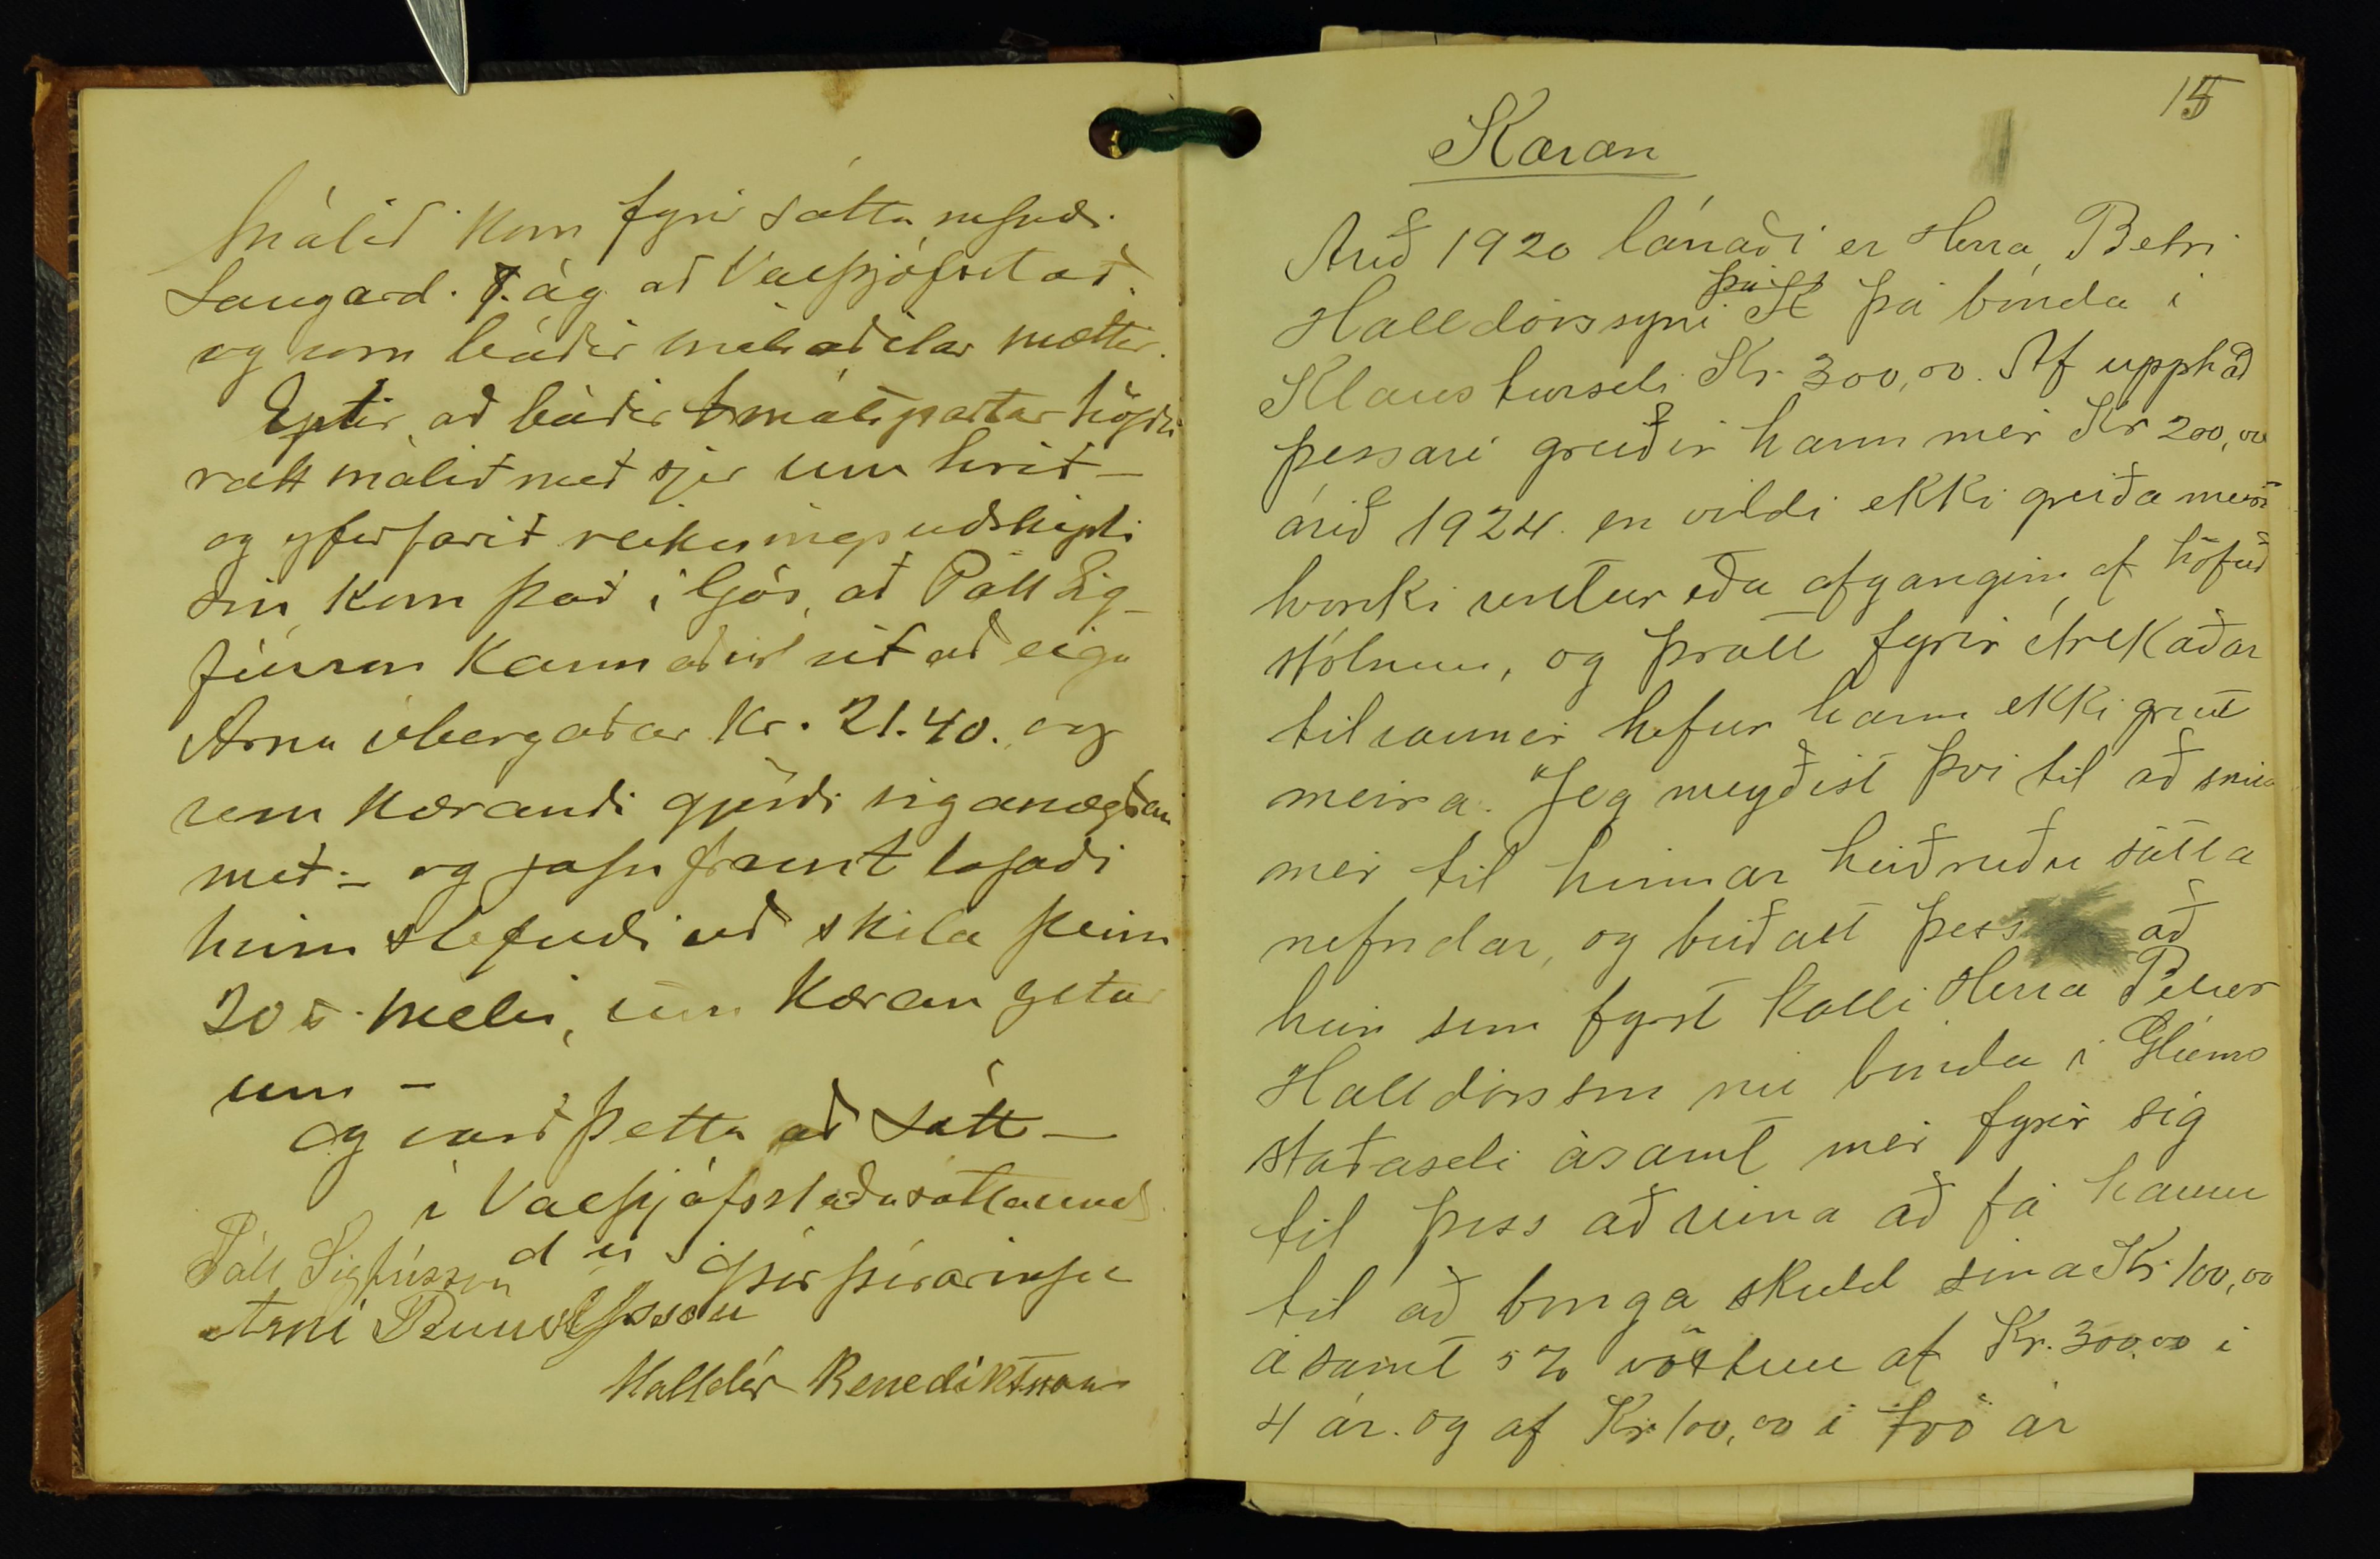 Málið kom fyrir sátta nefnd.
Laugard. 7. ág. að Valþjófsstað.
og sem báðir málsaðilar mættir.
Eptir að báðir málspartar höfðu
rætt málið með sjer um hríð –
og yfirfarið reiknings viðskipti
sín, kom það í ljós, að Páll Sig-
fússon kannaðist við að eiga
Árna óborgaðar kr. 21.40. og
sem kærandi gjörði sig ánægðan
með – og jafnframt lofaði
hinn stefndi að skila þeim
20 meli, um kæran getur
um –
og varð þetta að sátt –
í Valþjófsstaða sáttaumd
Páll Sigfússon
Árni Runólfsson
Halldór Benediktsson
15
Kæran
Árið 1920 lánaði er Herra Petri
Halldórssyni þá bónda í
Klausturseli Kr. 300,00. Af upphæð
þessari greiðir hann mér Kr 200,00
árið 1924. en vildi ekki greiða meir
hvorki vextur eða afganginn af höfuð
stólnum, og þrátt fyrir ítrekaðar
tilraunir hefur hann ekki greitt
meira. Jeg neyðist því til að snúa
mér til hinnar heiðruðu sátta
nefndar, og biðast þess að
hún sem fyrst kalli Herra Pétur
Halldórsson nú bónda í Glúms
staðaseli ásamt mér fyrir sig
til þess að reina að fá hann
til að borga skuld sína Kr. 100,00
ásamt 5% vöxtum af Kr. 300.00 í
4 ár. og af Kr. 100,00 í tvö ár